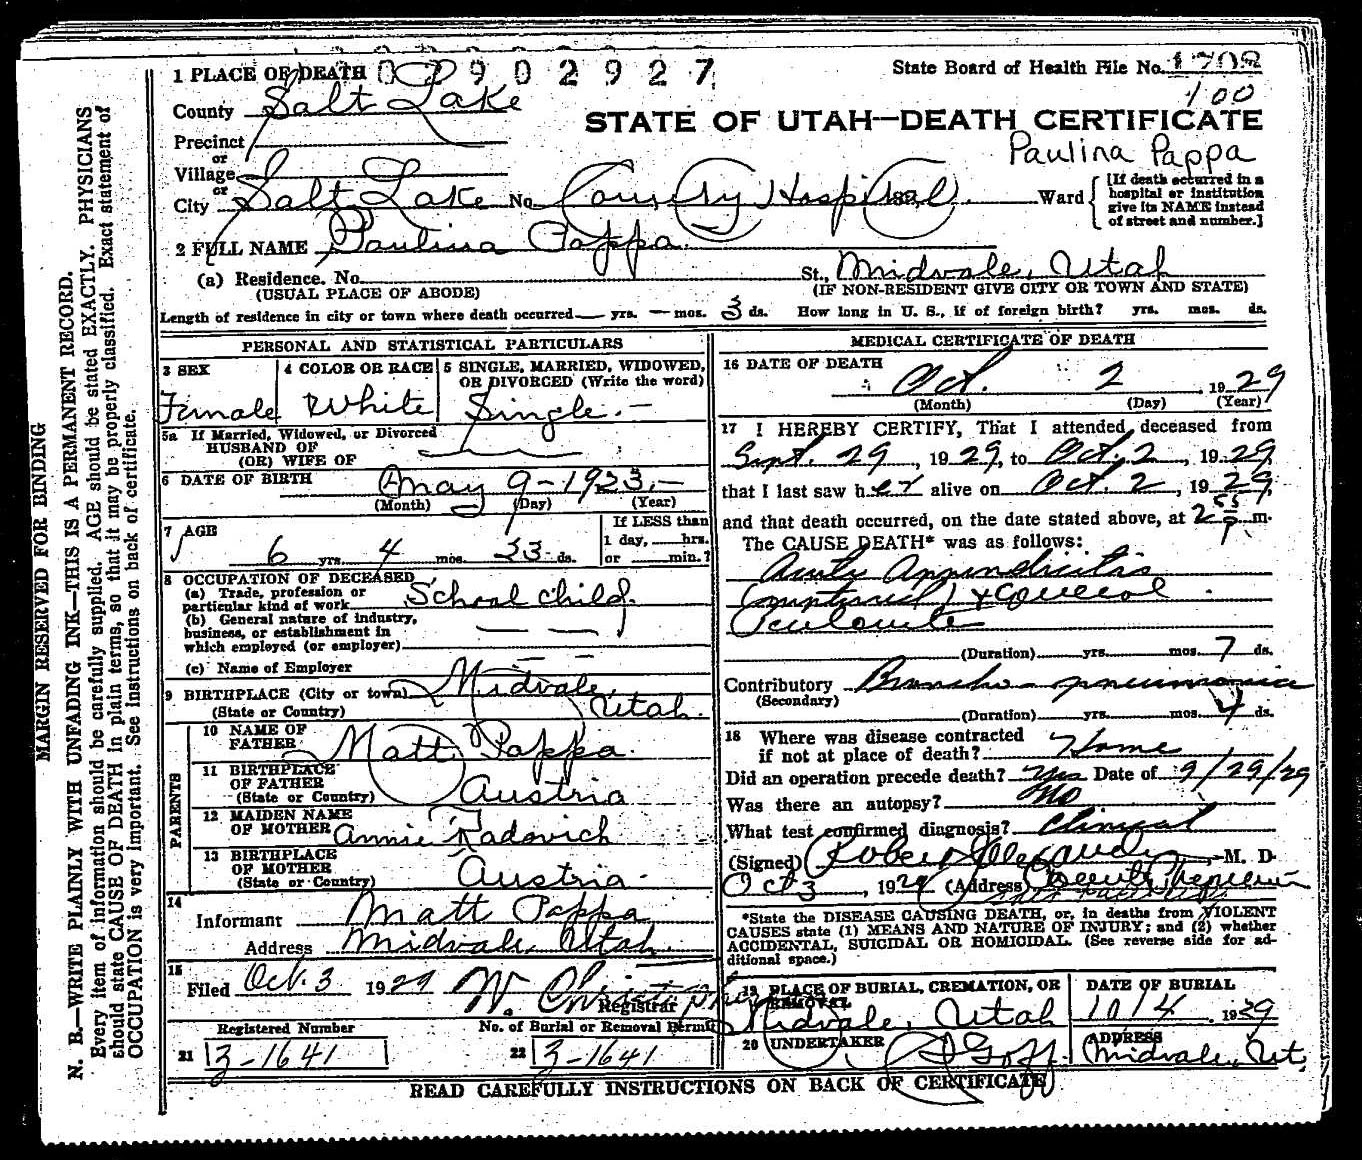 1 PLACE OF DEATH 0 2 9 0 2 9 2 7
State Board of Health File No. 1708
100
County Salt Lake
STATE OF UTAH—DEATH CERTIFICATE
Precinct
or
Paulina Pappa
Village
or
City Salt Lake No. County Hospital St. Ward
[If death occurred in a hospital or institution give its NAME instead of street and number.]
2 FULL NAME Paulina Pappa
(a) Residence. No. St., Midvale, Utah
(USUAL PLACE OF ABODE) (IF NON-RESIDENT GIVE CITY OR TOWN AND STATE)
Length of residence in city or town where death occurred — yrs. — mos. 3 ds. How long in U. S., if of foreign birth? yrs. mos. ds.
PERSONAL AND STATISTICAL PARTICULARS
3 SEX
Female
4 COLOR OR RACE
White
5 SINGLE, MARRIED, WIDOWED, OR DIVORCED (Write the word)
Single.-
5a If Married, Widowed, or Divorced
HUSBAND OF
(OR) WIFE OF
6 DATE OF BIRTH May 9-1923.-
(Month) (Day) (Year)
7 AGE
6 yrs. 4 mos. 23 ds.
If LESS than
1 day, hrs.
or min.?
8 OCCUPATION OF DECEASED
(a) Trade, profession or
particular kind of work School child.
(b) General nature of industry,
business, or establishment in
which employed (or employer)
(c) Name of Employer
9 BIRTHPLACE (City or town) Midvale,
(State or Country) Utah.
PARENTS
10 NAME OF
FATHER Matt Pappa.
11 BIRTHPLACE
OF FATHER
(State or Country) Austria
12 MAIDEN NAME
OF MOTHER Annie Radovich
13 BIRTHPLACE
OF MOTHER
(State or Country) Austria.
14
Informant Matt Pappa
Address Midvale, Utah.
15
Filed Oct. 3 1929
Registrar
Registered Number
21 3-1641
No. of Burial or Removal Permit
22 3-1641
MEDICAL CERTIFICATE OF DEATH
16 DATE OF DEATH
Oct. 2, 1929
(Month) (Day) (Year)
17 I HEREBY CERTIFY, That I attended deceased from
Sept. 29, 1929, to Oct. 2, 1929
that I last saw her alive on Oct. 2, 1929
and that death occurred, on the date stated above, at 2 55 p. m.
The CAUSE DEATH* was as follows:
Acute Appendicitis
(ruptured) & General
Peritonitis
(Duration) yrs. mos. 7 ds.
Contributory Broncho-pneumonia
(Secondary)
(Duration) yrs. mos. 4 ds.
18 Where was disease contracted
if not at place of death? Home
Did an operation precede death? Yes Date of 9/29/29
Was there an autopsy? No
What test confirmed diagnosis? Clinical
(Signed) Robert Alexander, M. D.
Oct 3, 1929 (Address) County
*State the DISEASE CAUSING DEATH, or, in deaths from VIOLENT
CAUSES state (1) MEANS AND NATURE OF INJURY; and (2) whether
ACCIDENTAL, SUICIDAL OR HOMICIDAL. (See reverse side for additional space.)
19 PLACE OF BURIAL, CREMATION, OR
REMOVAL
Midvale, Utah
DATE OF BURIAL
10/4, 1929
20 UNDERTAKER
Goff.
ADDRESS
Midvale, Ut.
READ CAREFULLY INSTRUCTIONS ON BACK OF CERTIFICATE
MARGIN RESERVED FOR BINDING
N. B.—WRITE PLAINLY WITH UNFADING INK—THIS IS A PERMANENT RECORD.
Every item of information should be carefully supplied. AGE should be stated EXACTLY. PHYSICIANS
should state CAUSE OF DEATH in plain terms, so that it may be properly classified. Exact statement of
OCCUPATION is very important. See instructions on back of certificate.